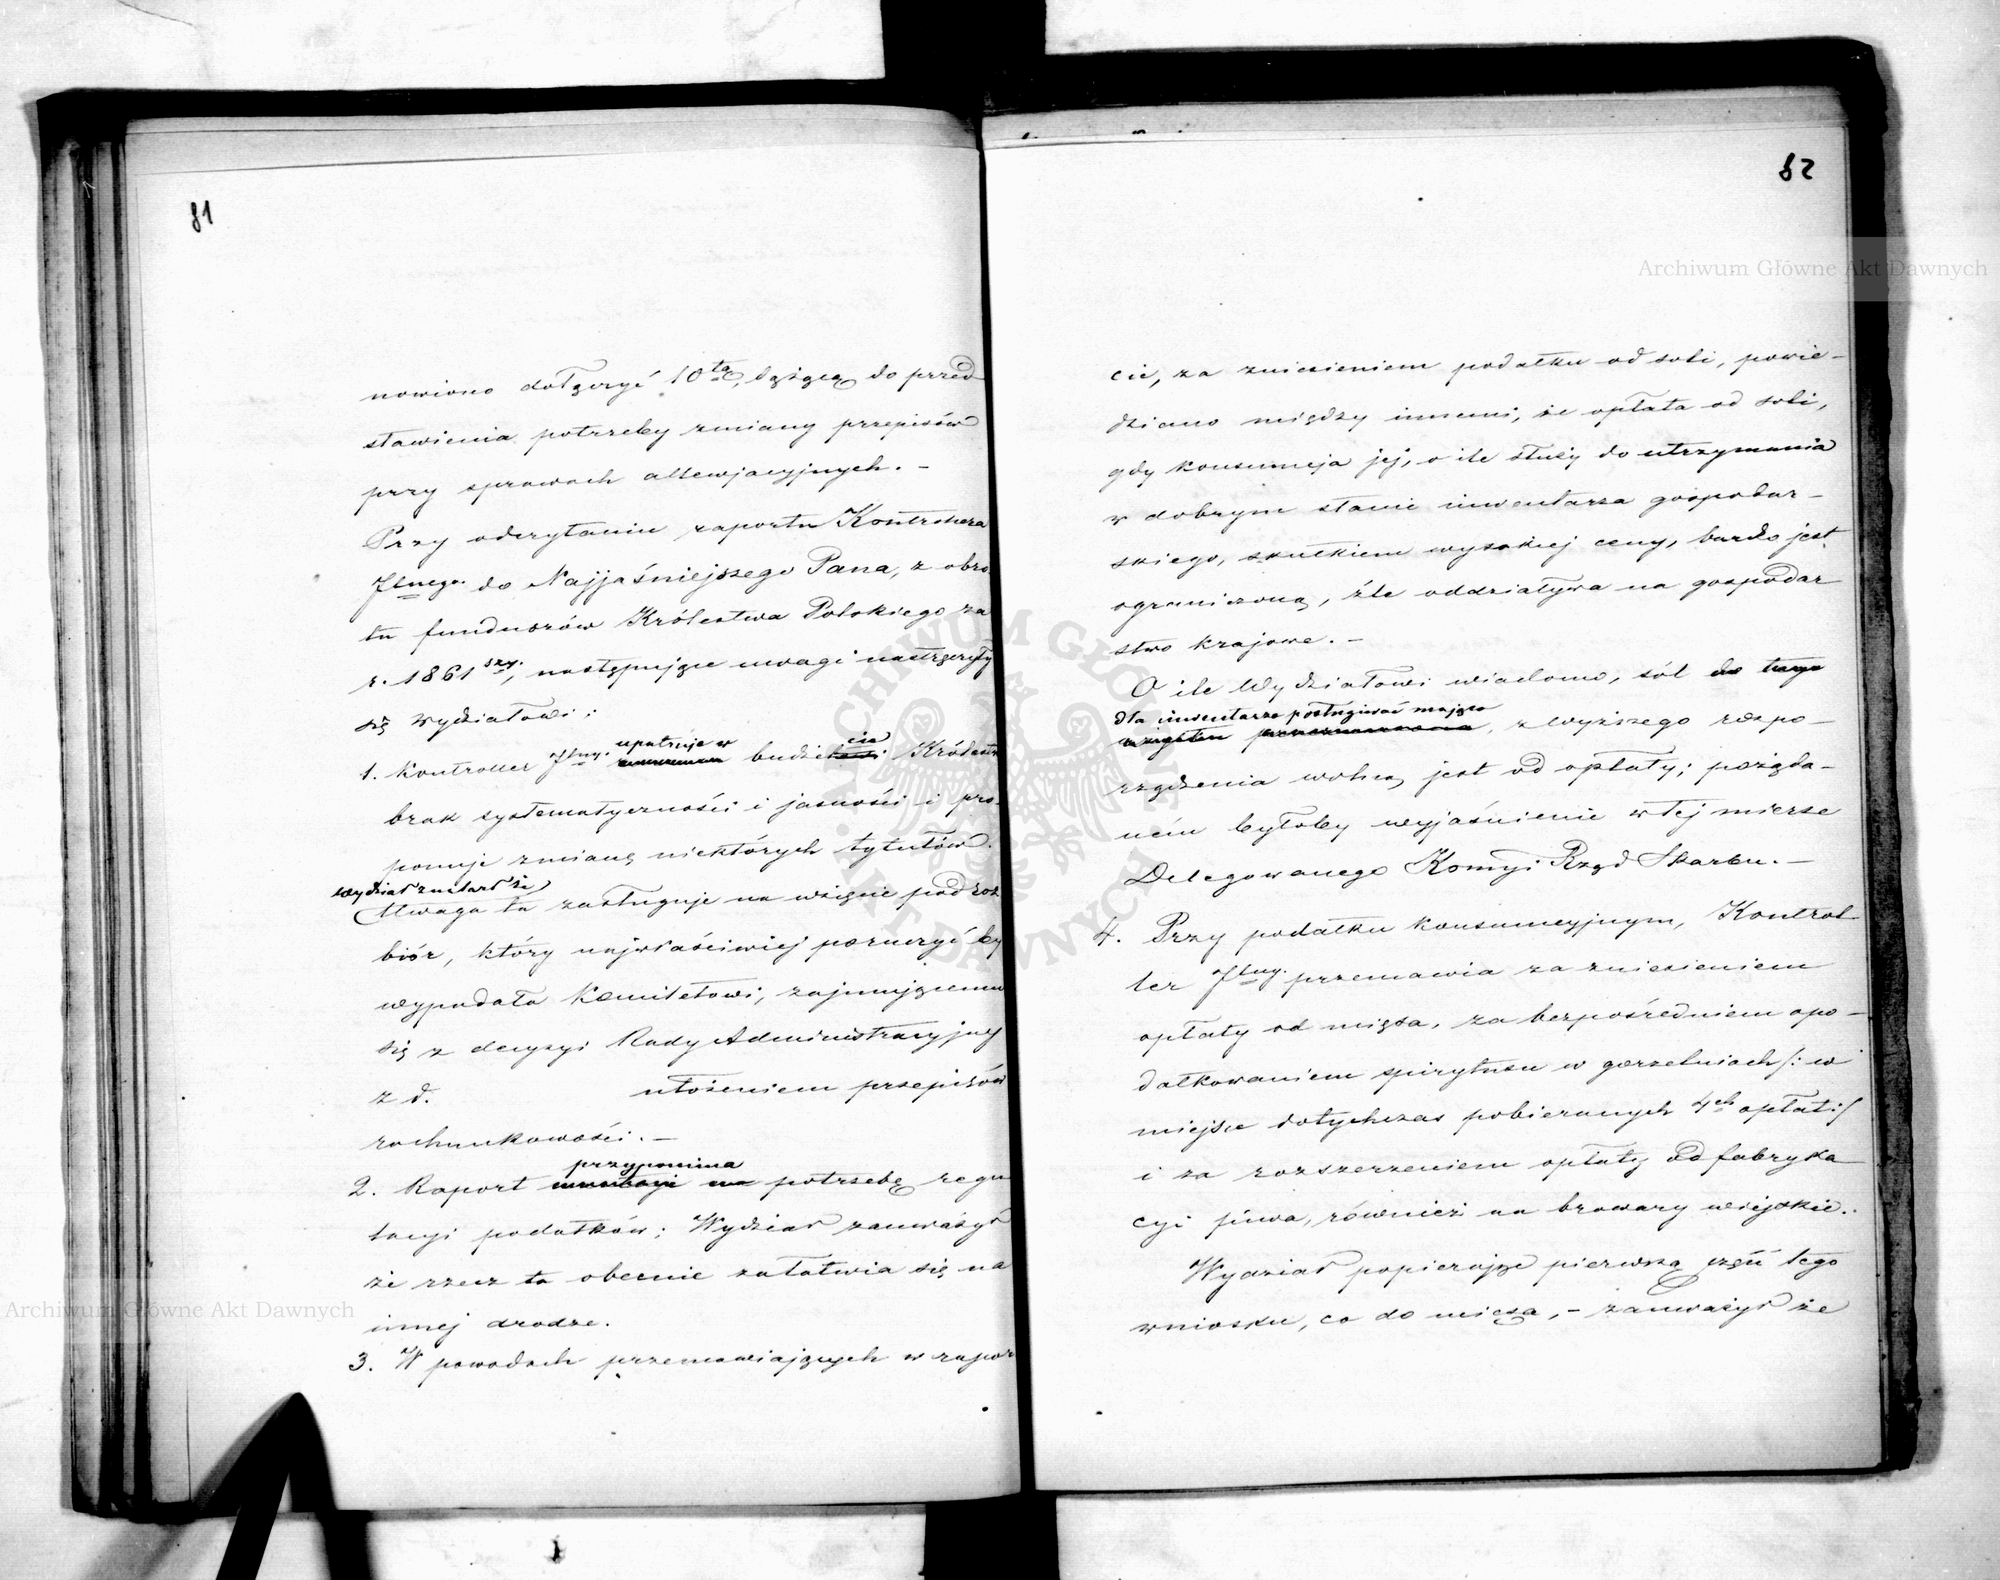 81
nowiono dołączyć 10tą, dążącą do przed
stawienia potrzeby zmiany przepisów
przy sprawach allewjacyjnych. –
Przy odczytaniu raportu Kontrolera
Jlnego do Najjaśniejszego Pana, z obro
tu funduszów Królestwa Polskiego za
r. 1861szy, następujące uwagi nastręczyły
się wydziałowi:
upatruje w cie
1. Kontroller Jlny budże Królestwa
brak systematyczności i jasności i pro-
ponuje zmianę niektórych tytułów.
wydział znalazł że
Uwaga ta zasługuje na wzięcie pod roz
biór, który najwłaściwiej poruczyć by
wypadało Komitetowi, zajmującemu
się z decyzyi Rady Administracyjnej
z d. ułożeniem przepisów
rachunkowości. –
przypomina
2. Raport potrzebę regu
lacyi podatków; Wydział zauważył
że rzecz ta obecnie załatwia się na
innej drodze.
3. W powodach przemawiających w rapor
82
cie, za zniesieniem podatku od soli, powie-
dziano między innemi, że opłata od soli,
gdy konsumcja jej, o ile służy do utrzymania
w dobrym stanie inwentarza gospodar-
skiego, skutkiem wysokiej ceny, bardzo jest
ograniczoną, źle oddziaływa na gospodar
stwo krajowe. –
O ile Wydziałowi wiadomo, sól do tego
dla inwentarza posługiwać mająca
użytku, z wyższego rozpo-
rządzenia wolną jest od opłaty; pożąda-
ném byłoby wyjaśnienie w tej mierze
Delegowanego Komyi Rząd Skarbu. –
4. Przy podatku konsumcyjnym, Kontrol
ler Jlny przemawia za zniesieniem
opłaty od mięsa, za bezpośredniem opo-
datkowaniem spirytusu w gorzelniach /: w
miejsce dotychczas pobieranych 4ch opłat :/
i za rozszerzeniem opłaty od fabryka
cyi piwa, również na browary wiejskie.
Wydział popierając pierwszą część tego
wniosku, co do mięsa, – zauważył że
Archiwum Główne Akt Dawnych
Archiwum Główne Akt Dawnych
ARCHIWUM GŁÓWNE AKT DAWNYCH